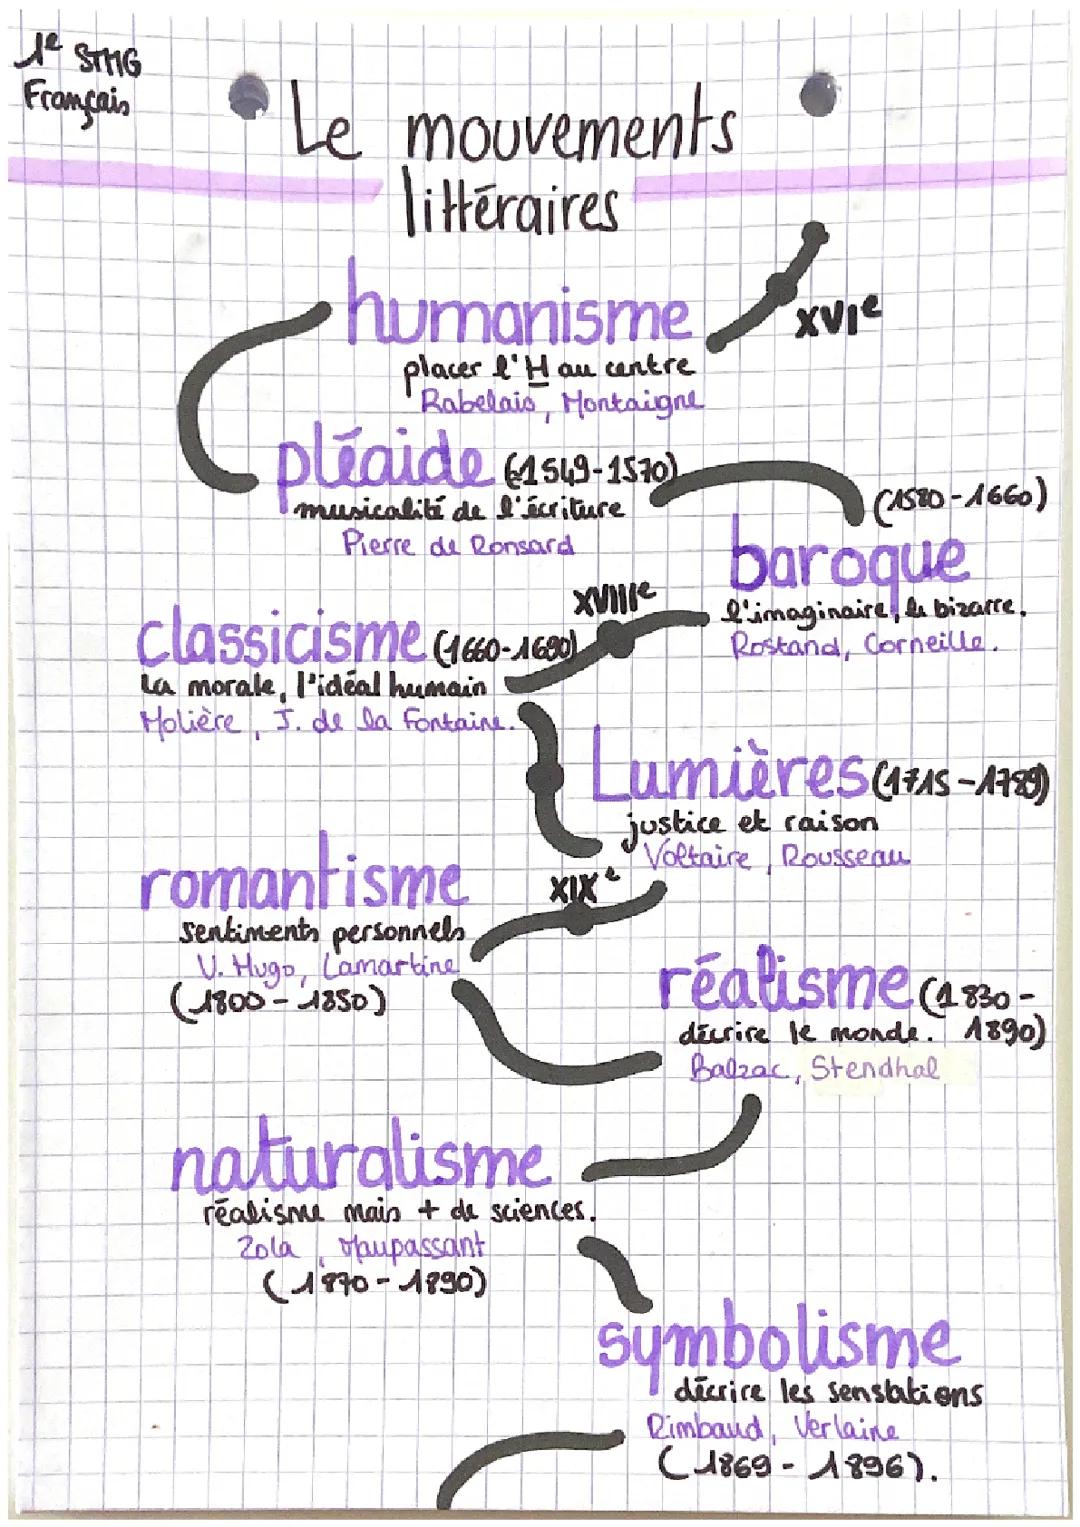 1e STMG
Français
Le mouvements
littéraires
humanisme
XVIe
placer l'H au centre
Rabelais, Montaigne
pléaide (1549-1570)
musicalité de l'écriture
Pierre de Ronsard
(1580-1660)
baroque
l'imaginaire, le bizarre.
Rostand, Corneille.
XVIIIe
classicisme (1660-1690)
la morale, l'idéal humain
Molière, J. de la Fontaine.
Lumières (1715-1789)
justice et raison
Voltaire, Rousseau
XIXe
romantisme
sentiments personnels
V. Hugo, Lamartine
(1800-1850)
réalisme (1830-
1890)
décrire le monde.
Balzac, Stendhal
naturalisme
réalisme mais + de sciences.
Zola, Maupassant
(1870-1890)
symbolisme
décrire les senstations
Rimbaud, Verlaine
(1869-1896).